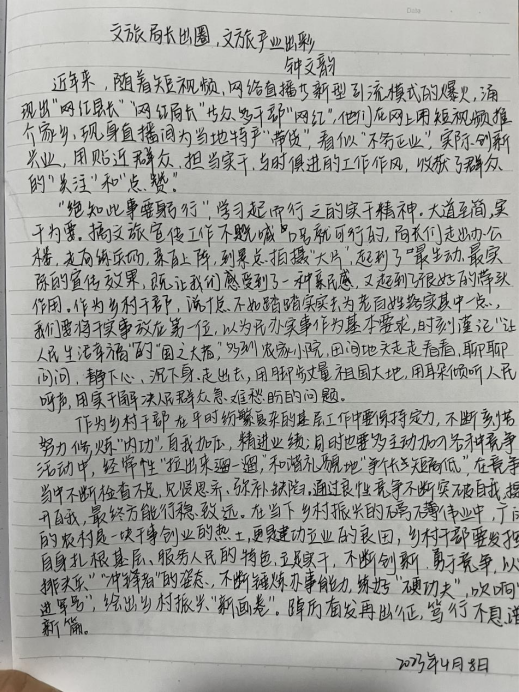 Date
文旅局长出圈,文旅产业出彩
钟文韵
近年来,随着短视频,网络直播等新型引流模式的爆火,涌
现出“网红县长”“网红局长”等众多干部“网红”,他们在网上用短视频推
介家乡,现身直播间为当地特产“带货”,看似“不务正业”,实际创新
兴业,用贴近群众、担当实干、与时俱进的工作作风,收获了群众
的“关注”和“点赞”。
“绝知此事要躬行”,学习起而行之的实干精神。大道至简,实
干为要。搞文旅宣传工作不是喊口号就可行的,局长们走出办公
楼,亲自上阵,到景点拍摄“大片”,起到了“最生动、最实
际的宣传效果,既让我们感受到了一种亲民感,又起到了很好的带头
作用。作为乡村干部,流于形不如踏踏实实去为老百姓结实其中一点、
我们要将干实事放在第一位,以为民办实事作为基本要求,时刻谨记“让
人民生活幸福”的“国之大者”,多到农家小院,田间地头走走看看,聊聊
问问,静下心、沉下身、走出去,用脚步丈量祖国大地,用耳朵倾听人民
呼声,用实干解决人民群众急难愁盼的问题。
作为乡村干部在平时纷繁复杂的基层工作中要保持定力,不断刻苦
努力修炼“内功”,自我加压,精进业绩;同时也要多主动加入各种竞争
活动中,经常性“拉出来遛一遛”,和谐礼貌地“争长论短高低”,在竞争
当中不断检查不足,见贤思齐、弥补缺陷,通过良性竞争不断突破自我,提
升自我,最终方能行稳致远。在当下乡村振兴的磅礴伟业中,广阔
的农村是一块干事创业的热土,更是建功立业的良田,乡村干部要发挥
自身扎根基层、服务人民的特色,立足实干,不断创新,勇于竞争,以
排头兵”“冲锋者”的姿态,不断锤炼办事能力,练好“硬功夫”,吹响
进军号”,绘出乡村振兴“新画卷”。踔厉奋发再出征,笃行不怠谱
新篇。
2023年4月8日